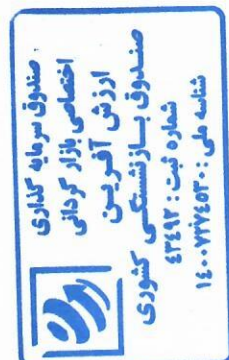 صندوق سرمایه گذاری
اختصاصی بازار گردانی
ارزش آفرین
صندوق بازنشستگی کشوری
شماره ثبت : ۴۳۴۹۲
شناسه ملی : ۱۴۰۰۷۲۷۴۵۳۰